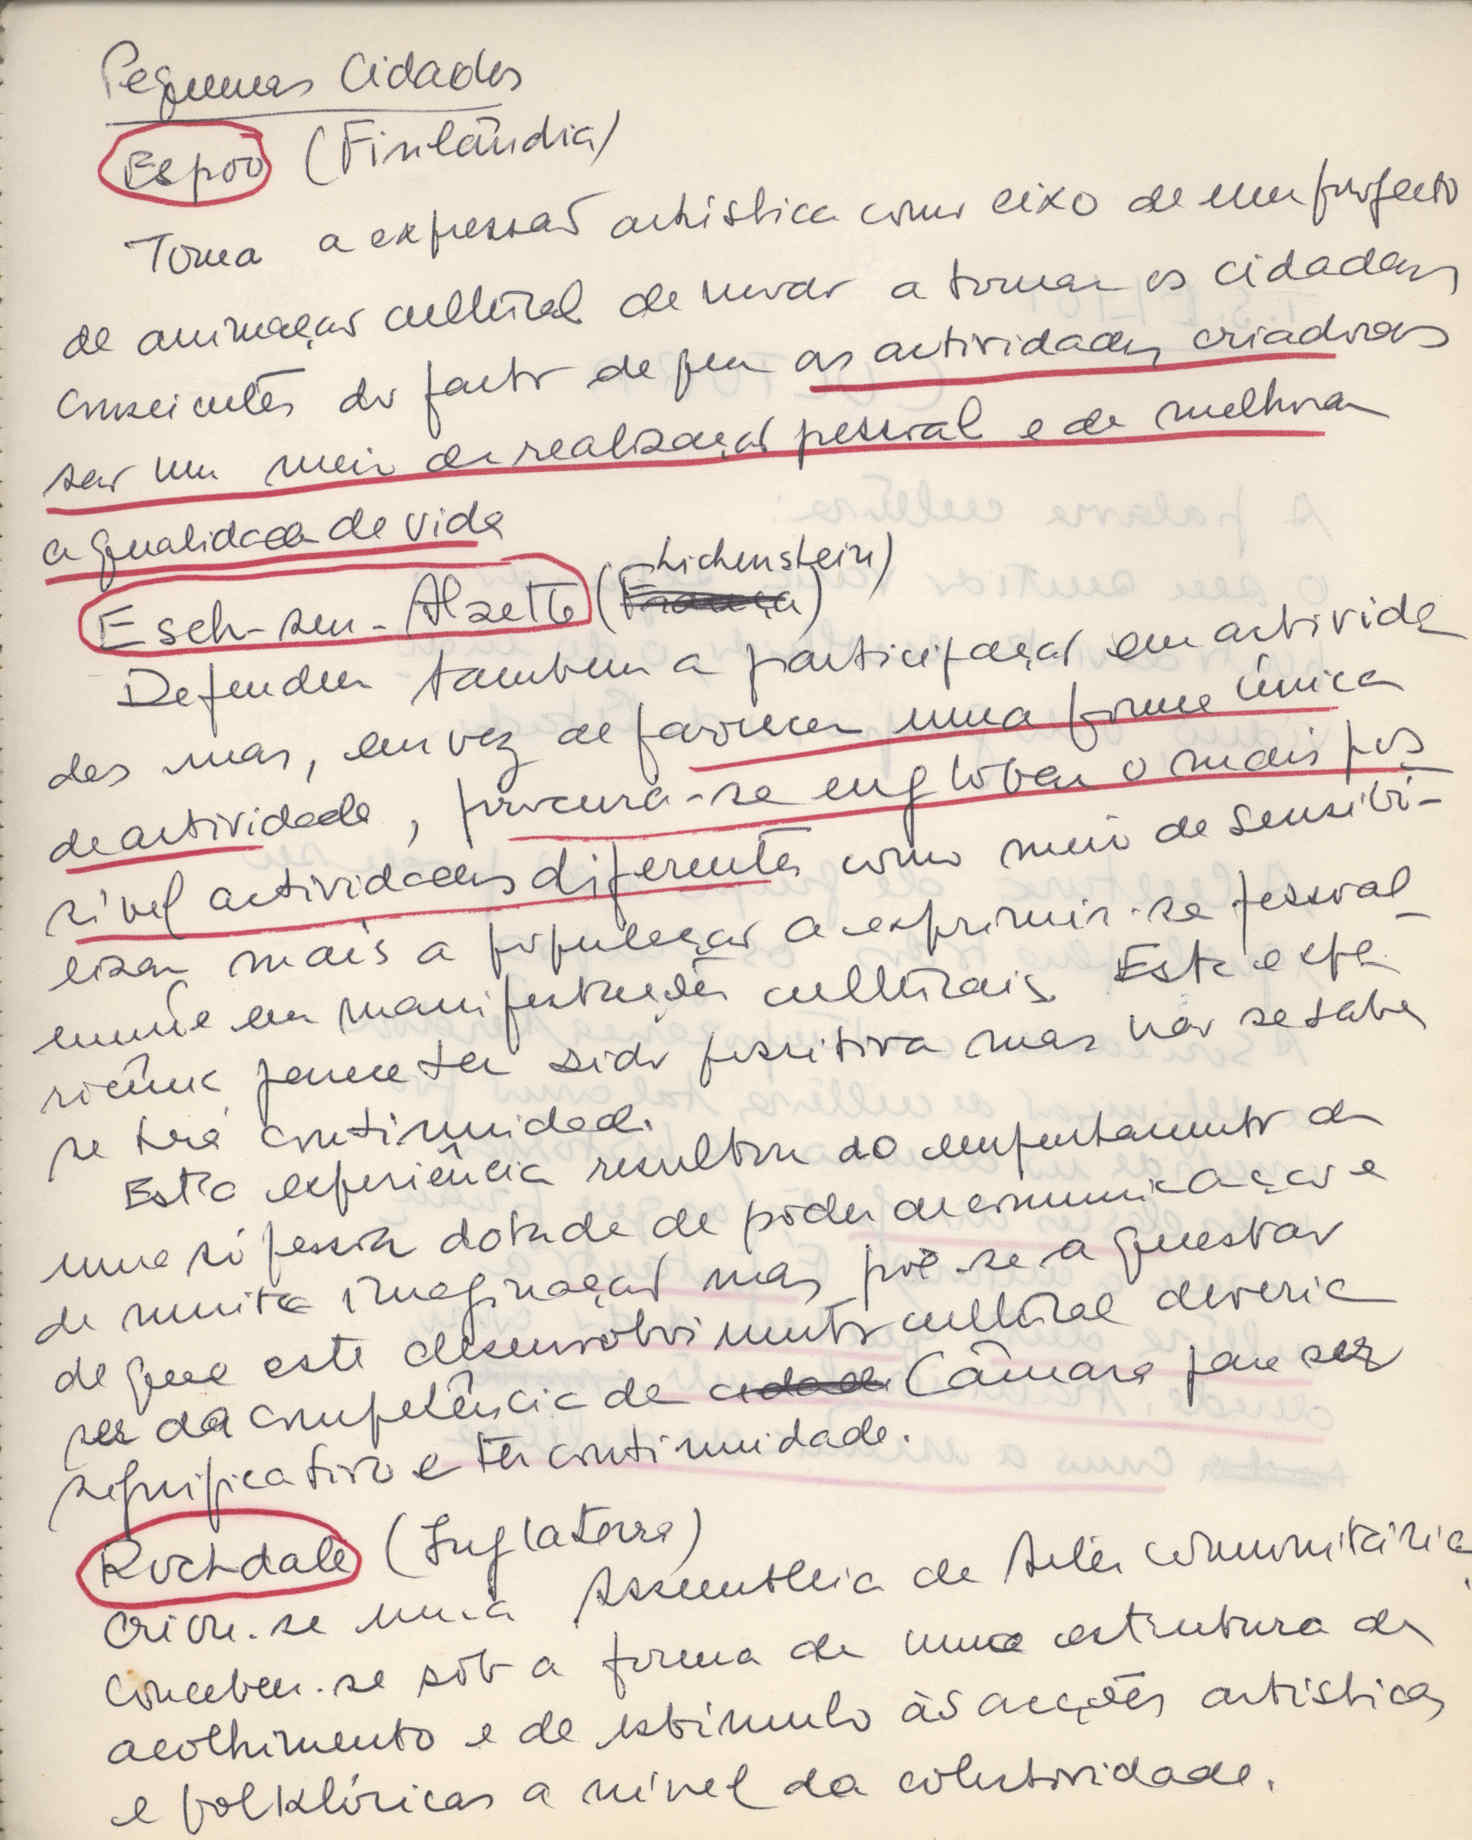 Pequenas Cidades
Espoo (Finlândia)
Toma a expressão artística como eixo de um projecto
de animação cultural de modo a tornar os cidadãos
conscientes do facto de que as actividades criadoras
ser um meio de realização pessoal e de melhorar
a qualidade de vida
Lichenstein)
Esch-sur-Alzette (França)
Defendem também a participação em activida
des mas, em vez de favorecer uma forma única
de actividade, procura-se englobar o mais pos
sível actividades diferentes como meio de sensibi-
lizar mais a população a exprimir-se pessoal_
mente em manifestações culturais. Esta expe_
riência parece ter sido positiva mas não se sabe
se terá continuidade.
Esta experiência resultou do empenhamento de
uma só pessoa dotada de poder de comunicação e
de muita imaginação mas põe-se a questão
de que este desenvolvimento cultural deveria
ser da competência da cidade Câmara para ser
significativo e ter continuidade.
Rochdale (Inglaterra)
Criou-se uma Assembleia de Artes comunitária.
Concebeu-se sob a forma de uma estrutura de
acolhimento e de estímulo às acções artísticas
e folklóricas a nível da colectividade.